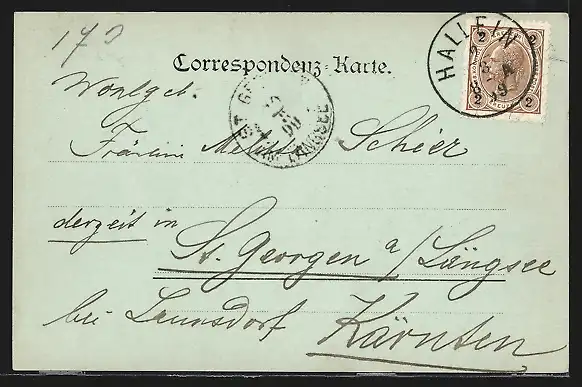 170
Correspondenz-Karte.
HALLEIN
2 2
2 2
Wohlgeb.
ST. GEORGEN AM LÄNGSEE
99
Fräulein Melitta Scheer
derzeit in
St. Georgen a/Längsee
bei Launsdorf Kärnten